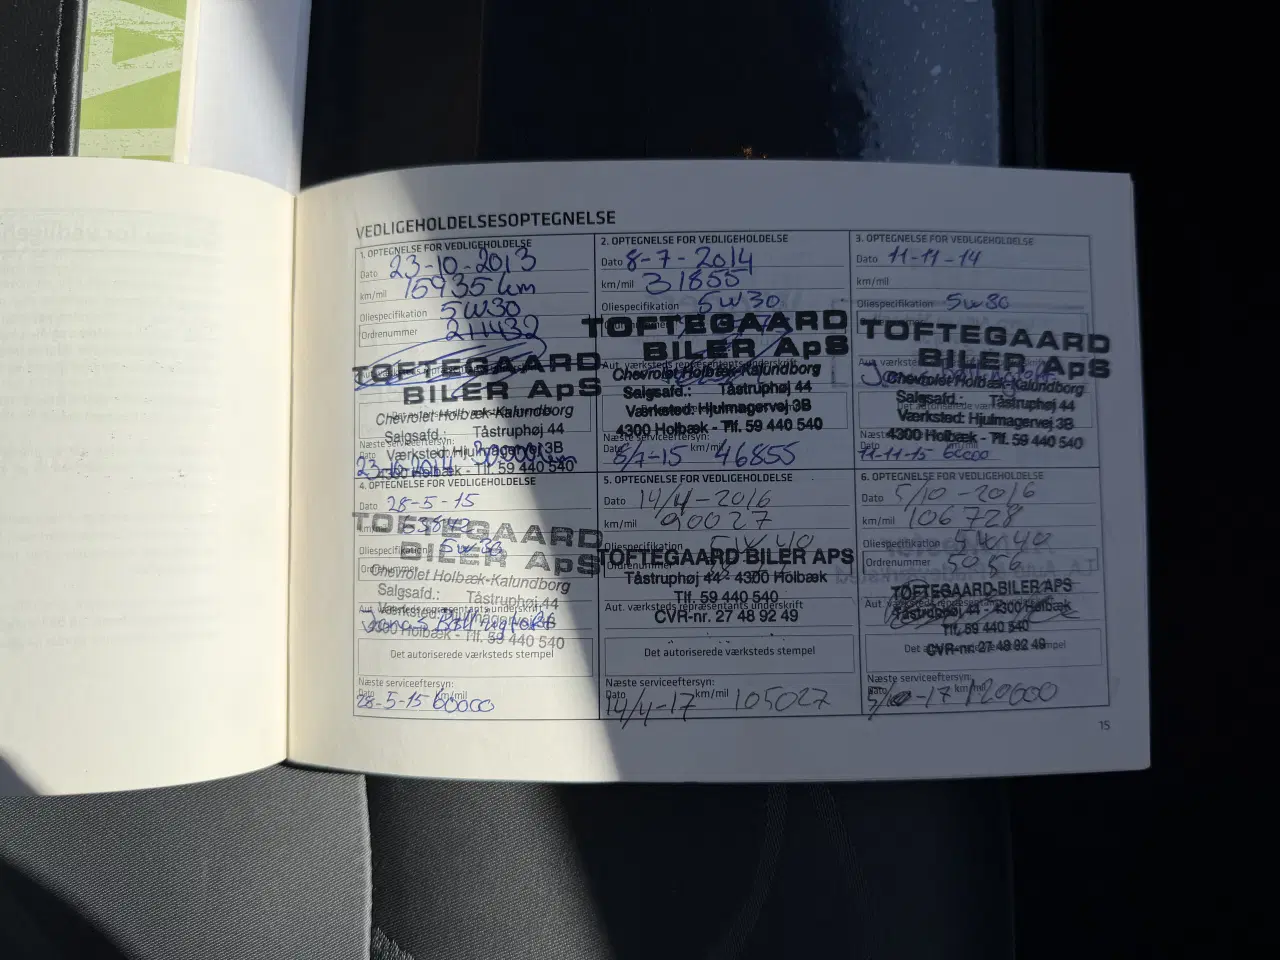 VEDLIGEHOLDELSESOPTEGNELSE
1. OPTEGNELSE FOR VEDLIGEHOLDELSE
Dato 23-10-2013
km/mil 15935 km
Oliespecifikation 5W30
Ordrenummer 211432
TOFTEGAARD
BILER ApS
Chevrolet Holbæk-Kalundborg
Salgsafd.: Tåstruphøj 44
Værksted: Hjulmagervej 3B
4300 Holbæk - Tlf. 59 440 540
Næste serviceeftersyn:
23-10-2014 30000 km
2. OPTEGNELSE FOR VEDLIGEHOLDELSE
Dato 8-7-2014
km/mil 31855
Oliespecifikation 5W30
TOFTEGAARD
BILER ApS
Aut. værksteds repræsentants underskrift
Chevrolet Holbæk-Kalundborg
Salgsafd.: Tåstruphøj 44
Værksted: Hjulmagervej 3B
4300 Holbæk - Tlf. 59 440 540
Næste serviceeftersyn:
Dato 8/7-15 km/mil 46855
3. OPTEGNELSE FOR VEDLIGEHOLDELSE
Dato 11-11-14
km/mil
Oliespecifikation 5W30
TOFTEGAARD
BILER ApS
Chevrolet Holbæk-Kalundborg
Salgsafd.: Tåstruphøj 44
Værksted: Hjulmagervej 3B
4300 Holbæk - Tlf. 59 440 540
11-11-15 60000
4. OPTEGNELSE FOR VEDLIGEHOLDELSE
Dato 28-5-15
km/mil 63842
TOFTEGAARD
Oliespecifikation 5W30
BILER ApS
Ordrenummer
Chevrolet Holbæk-Kalundborg
Salgsafd.: Tåstruphøj 44
Aut. værksteds repræsentants underskrift
Værksted: Hjulmagervej 3B
4300 Holbæk - Tlf. 59 440 540
Det autoriserede værksteds stempel
Næste serviceeftersyn:
Dato km/mil
28-5-15 60000
5. OPTEGNELSE FOR VEDLIGEHOLDELSE
Dato 14/4-2016
km/mil 90027
Oliespecifikation 5W40
TOFTEGAARD BILER APS
Ordrenummer
Tåstruphøj 44 - 4300 Holbæk
Tlf. 59 440 540
Aut. værksteds repræsentants underskrift
CVR-nr. 27 48 92 49
Det autoriserede værksteds stempel
Næste serviceeftersyn:
Dato 14/4-17 km/mil 105027
6. OPTEGNELSE FOR VEDLIGEHOLDELSE
Dato 5/10-2016
km/mil 106728
Oliespecifikation 5W40
Ordrenummer 5056
TOFTEGAARD BILER APS
Tåstruphøj 44 - 4300 Holbæk
Tlf. 59 440 540
CVR-nr. 27 48 92 49
Næste serviceeftersyn:
Dato 5/10-17 km/mil 120600
15